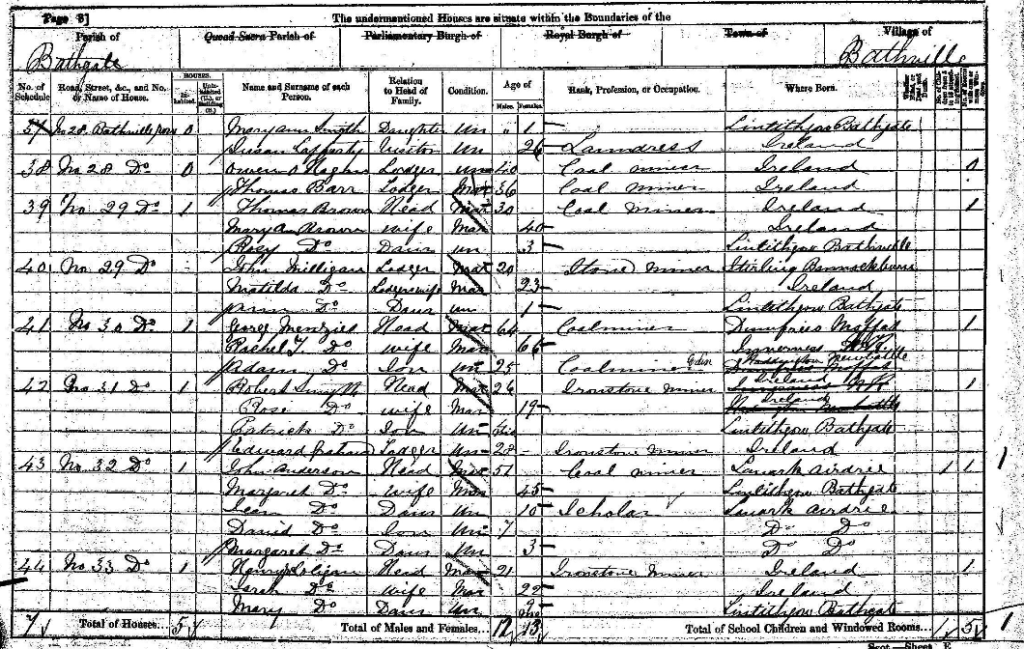 Page 8] The undermentioned Houses are situate within the Boundaries of the
Parish of Quoad Sacra Parish of Parliamentary Burgh of Royal Burgh of Town of Village of
Bathgate Bathville
No. of Schedule Road, Street, &c., and No. or Name of House. HOUSES. Name and Surname of each Person. Relation to Head of Family. Condition. Age of Males. Females. Rank, Profession, or Occupation. Where Born.
37 No 28 Bathville row 0 Mary ann Smith Daughter Un " 1 Linlithgow Bathgate
Susan Lafferty Visitor Un 26 Laundress Ireland
38 No 28 Do 0 Owen Lodger Un 40 Coal miner Ireland 0
Thomas Barr Lodger Mar 36 Coal Miner Ireland
39 No. 29 Do 1 Thomas Brown Head Mar 30 Coal Miner Ireland 1
Mary An Brown Wife Mar 40 Ireland
Rosy Do Daur un 3 Linlithgow Bathville
40 No 29 Do Jóhn Milligan Lodger Mar 20 Stone Miner Stirling Bannockburn
Matilda Do Lodgers wife Mar 23 Ireland
Do Daur un 1 Linlithgow Bathgate
41 No 30 Do 1 George Menzies Head Mar 64 Coalminer Dumfries Moffat 1
Rachel T. Do Wife Mar 66 Inverness
Adam Do Son un 25 Coalminer
42 No 31 Do 1 Robert Head Mar 26 Ironstone Miner Ireland 1
Rose Do Wife Mar 19 Ireland
Patrick Do Son Un Linlithgow Bathgate
Edward Graham Lodger Un 28 Ironstone Miner Ireland
43 No. 32 Do 1 John Anderson Head Mar 51 Coal miner Lanark Airdrie 1 1
Margaret Do Wife Mar 45 Linlithgow Bathgate
Jean Do Daur Un 10 Scholar Lanark Airdrie
David Do Son Un 7 Do Do
Margaret Do Daur Un 3 Do Do
44 No 33 Do 1 Henry Head Mar 21 Ironstone Miner Ireland 1
Sarah Do Wife Mar 22 Ireland
Mary Do Daur Un Linlithgow Bathgate
7 Total of Houses... 5 Total of Males and Females... 12 13 Total of School Children and Windowed Rooms... 1 5 1
Scot.—Sheet E.